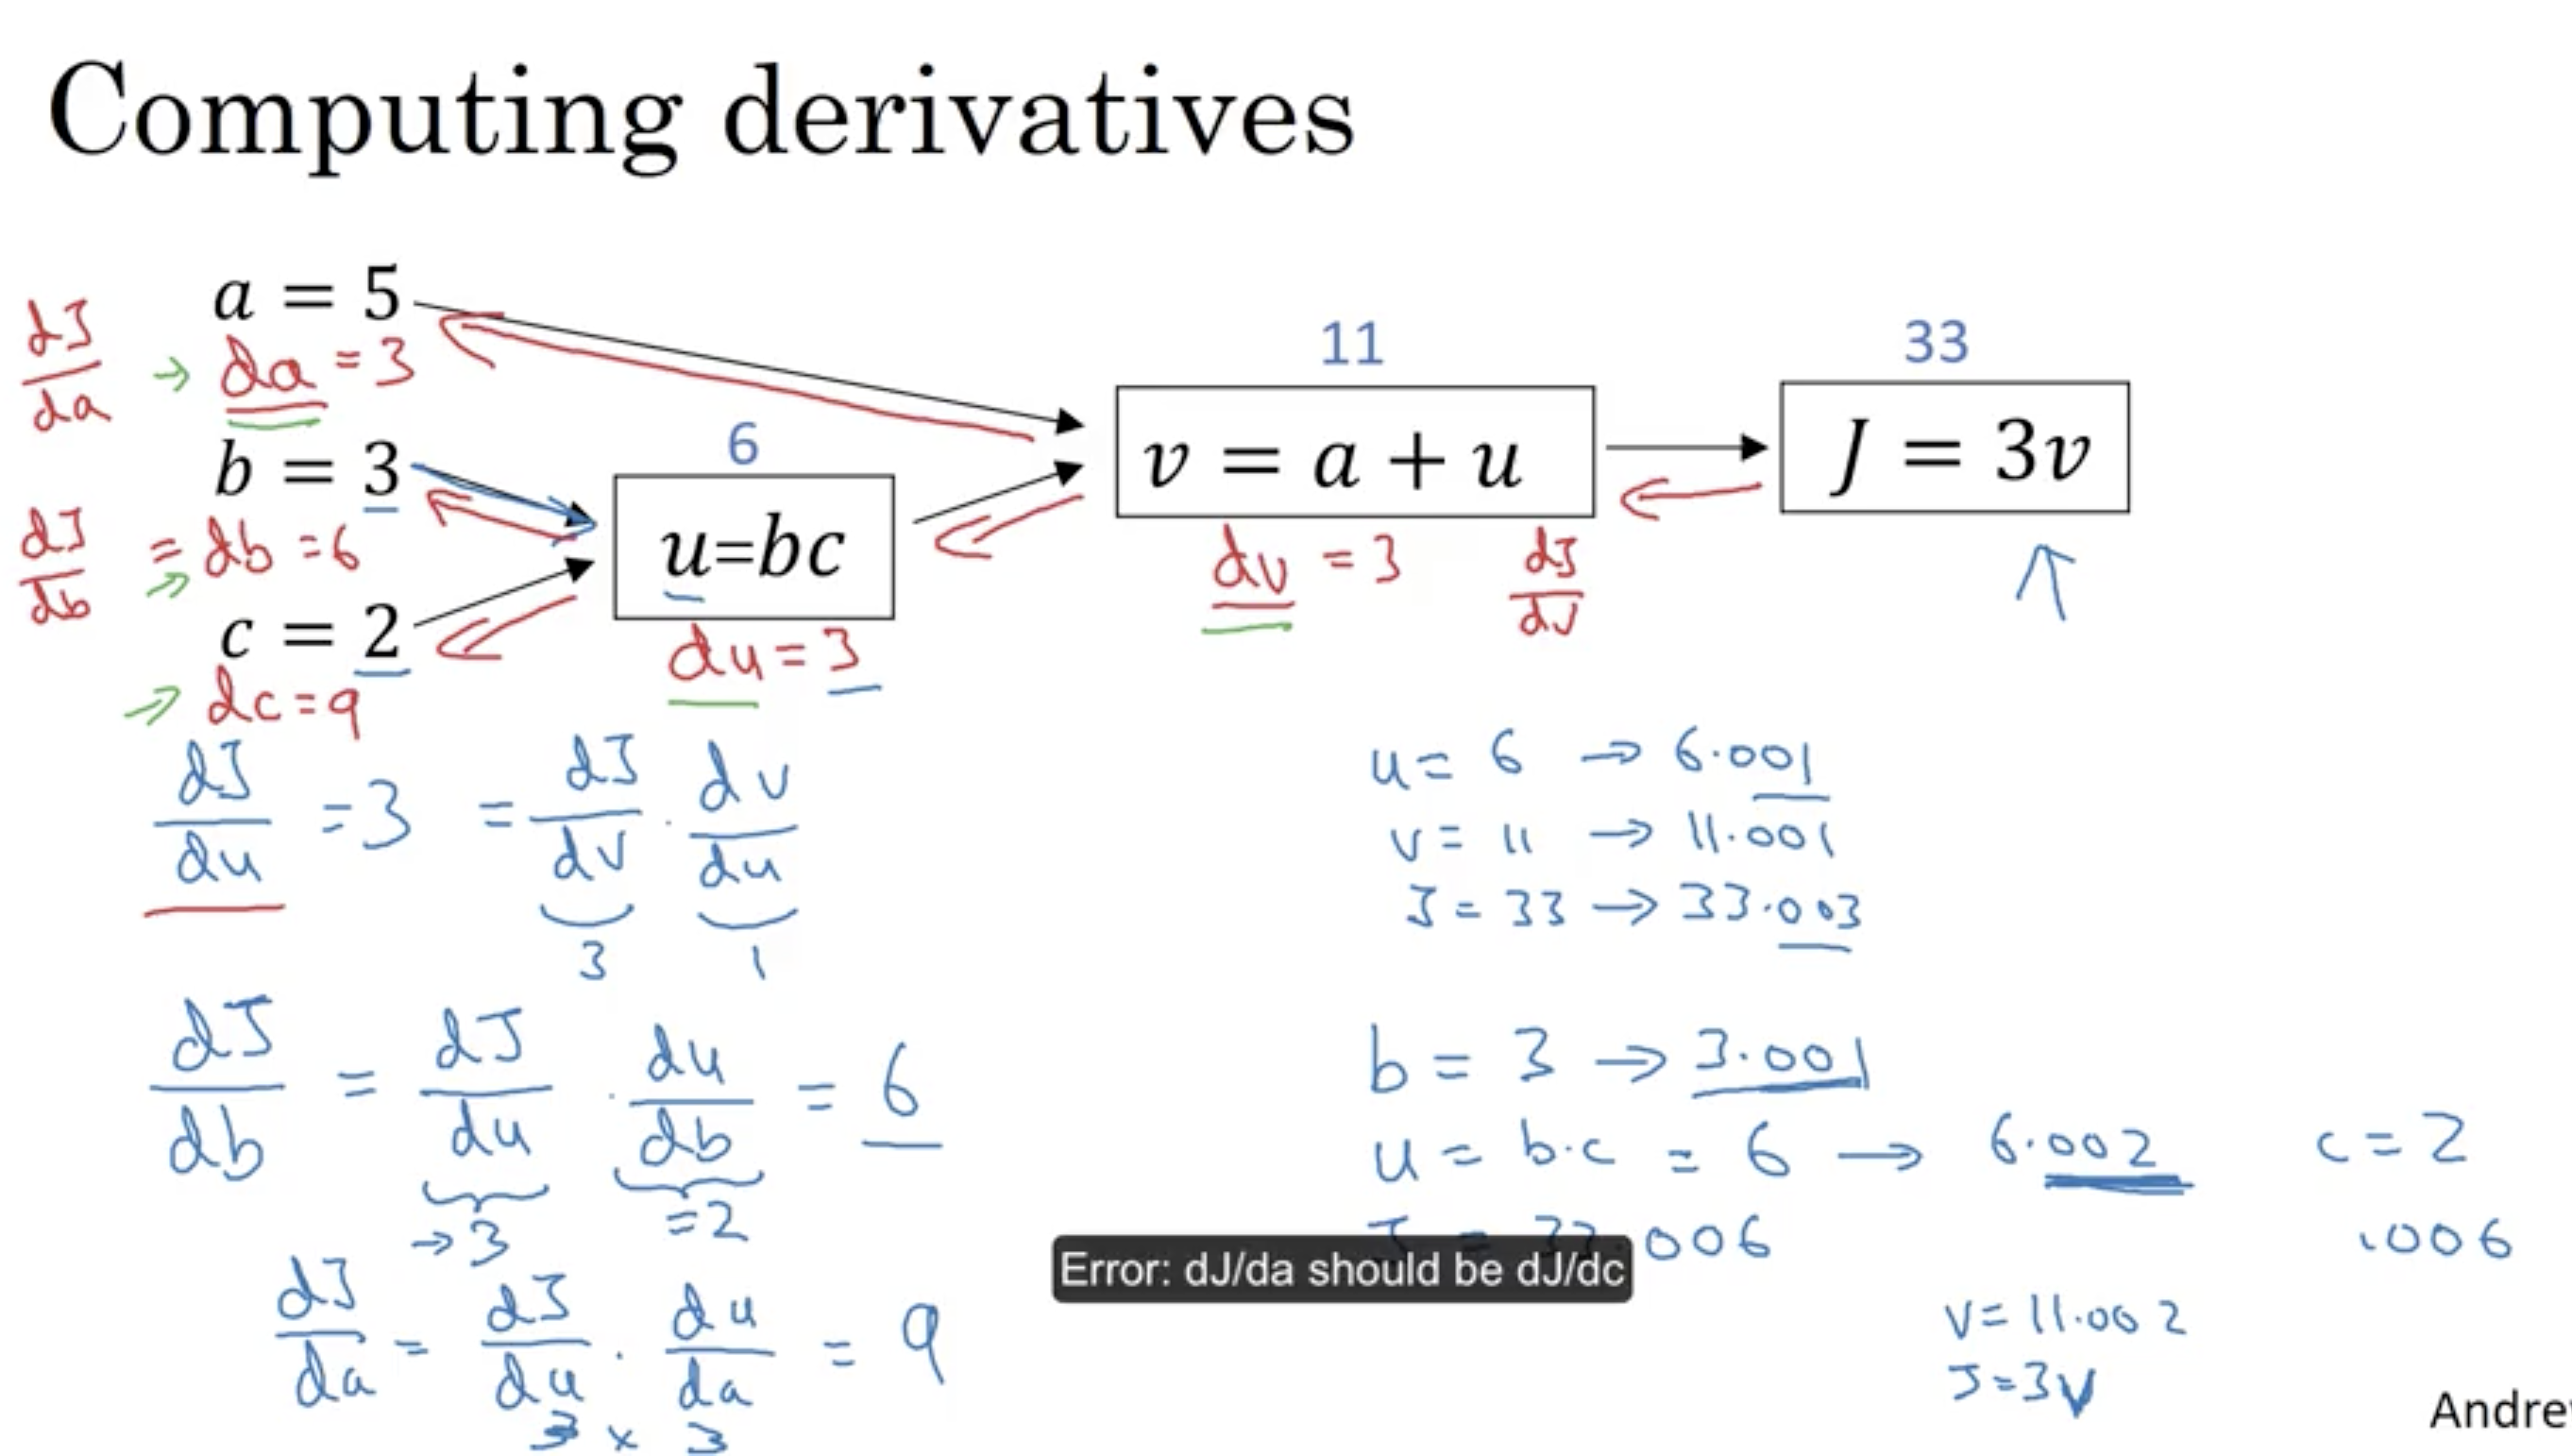 Computing derivatives
a = 5
dJ/da → da = 3
b = 3
dJ/db = db = 6
→
c = 2
→ dc = 9
6
u=bc
du = 3
11
v = a + u
dv = 3 dJ/dv
33
J = 3v
↑
dJ/du = 3 = dJ/dv · dv/du
3 1
dJ/db = dJ/du · du/db = 6
→3 =2
dJ/da = dJ/du · du/da = 9
3 × 3
u = 6 → 6.001
v = 11 → 11.001
J = 33 → 33.003
b = 3 → 3.001
u = b·c = 6 → 6.002 c = 2
J = 33.006 .006
Error: dJ/da should be dJ/dc
v = 11.002
J = 3v
Andre